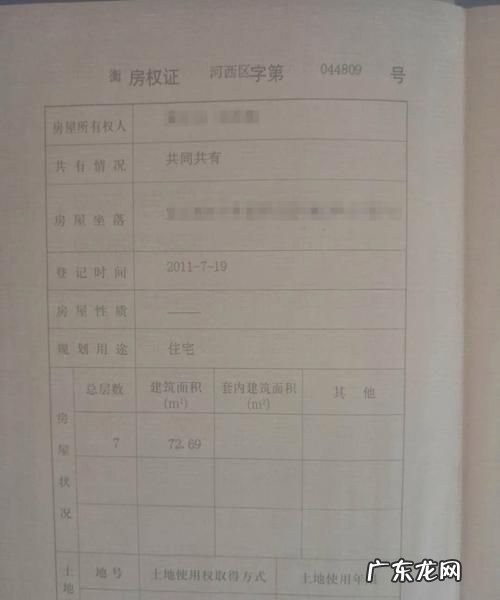 衡 房权证 河西区字第 044809 号
房屋所有权人
共有情况 共同共有
房屋坐落
登记时间 2011-7-19
房屋性质 ——
规划用途 住宅
房屋状况
总层数 建筑面积(m²) 套内建筑面积(m²) 其他
7 72.69
土地
地号 土地使用权取得方式 土地使用年
广东龙网